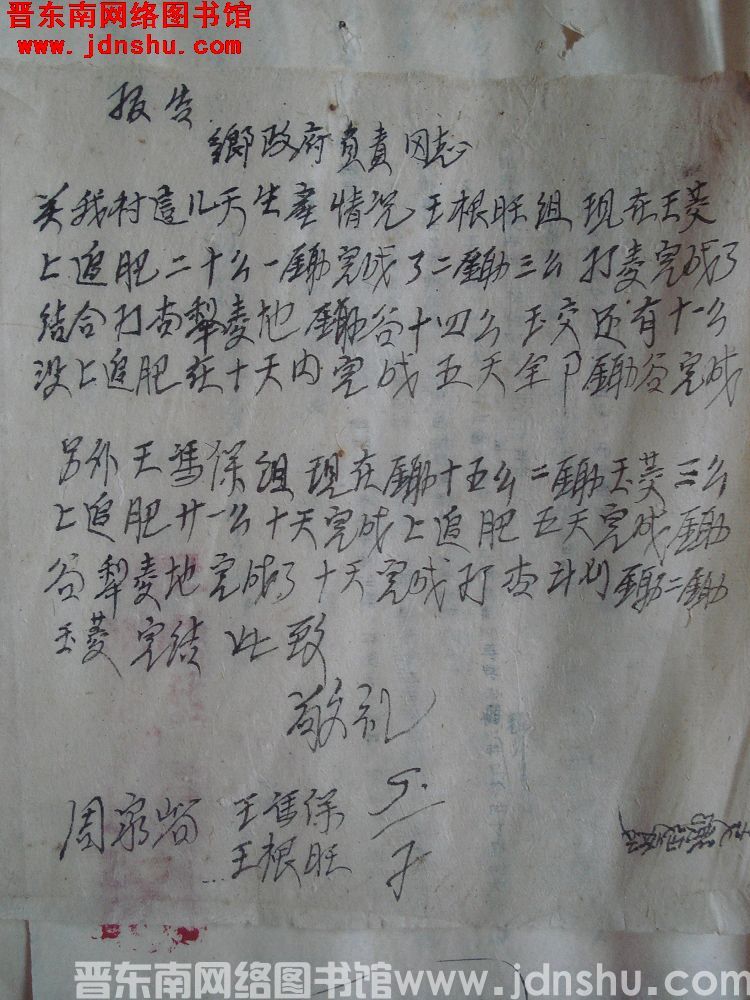 晋东南网络图书馆
www.jdnshu.com
报告
鄉政府負責同志
关我村這几天生産情况 王根旺组 现在玉茭
上追肥二十么一鋤完成了二鋤三么 打麦完成了
结合打杳犁麦地 鋤谷十四么 玉交还有十一么
没上追肥在十天内完成 五天全卩鋤谷完成
另外王馮保组现在鋤十五么二鋤玉茭三么
上追肥廿一么十天完成上追肥 五天完成鋤
谷犁麦地完成了十天完成打杳计划 鋤二鋤
玉茭 完结 此致
敬礼
周家峪 王馮保
王根旺
晋东南网络图书馆www.jdnshu.com